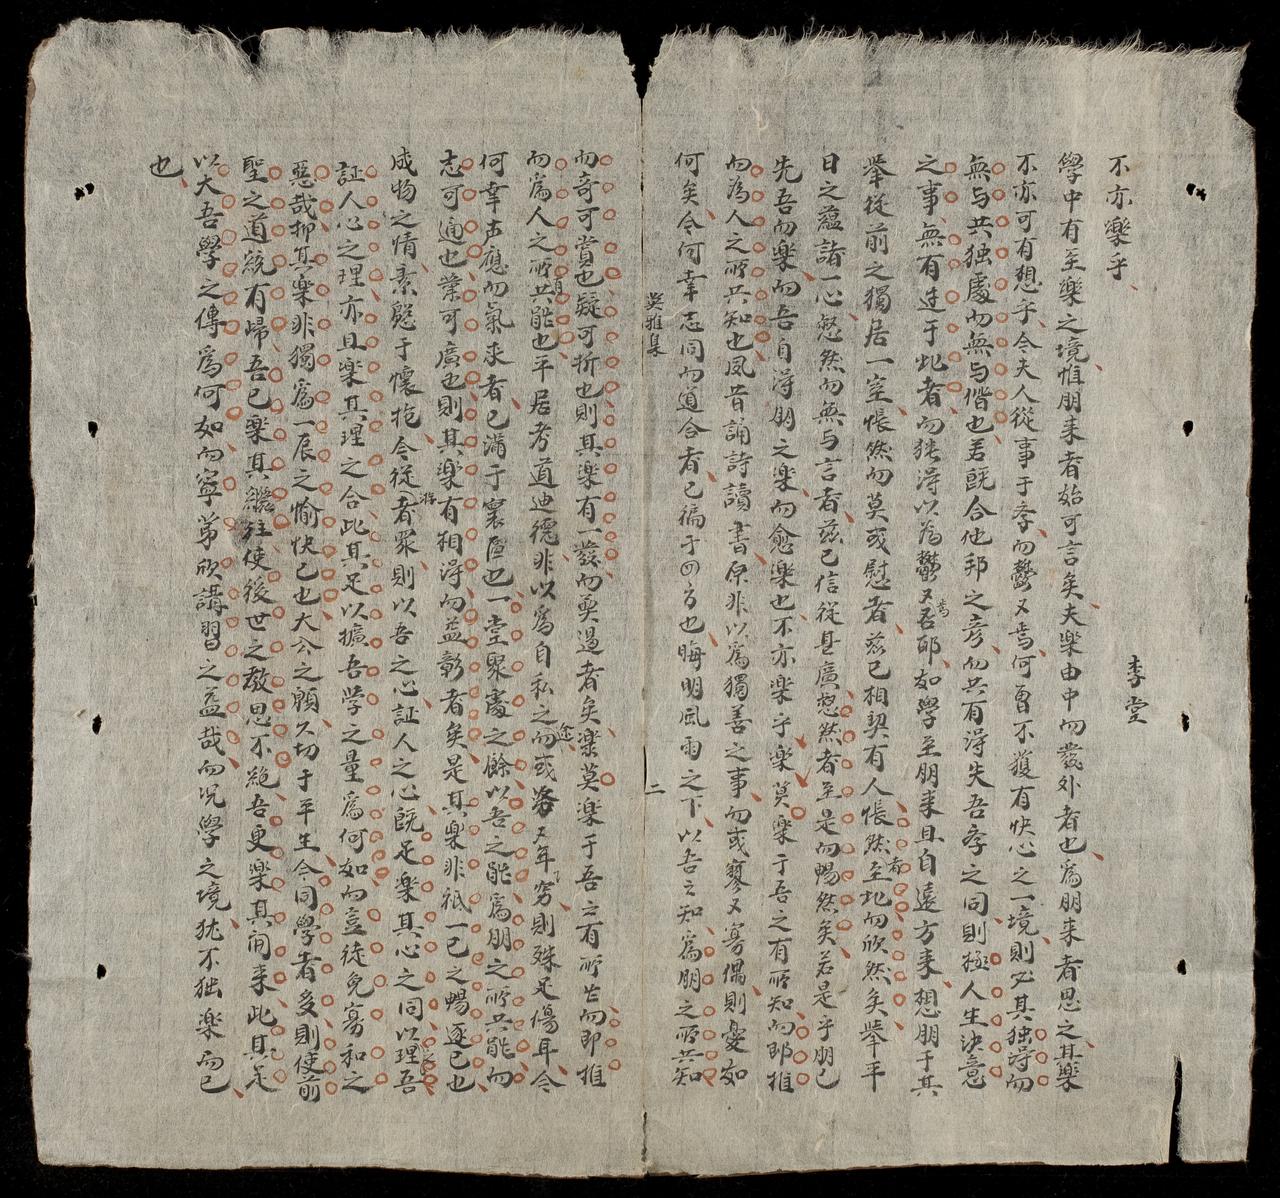 不亦樂乎
李堂
學中有至樂之境惟朋来者始可言矣夫樂由中而發外者也為朋来者思之其樂
不亦可有想乎今夫人從事于孝而鬱又焉何曾不獲有快心之一境則必其独得而
無与共独處而無与偕也若既合他邦之彦而共有得失吾孝之同則極人生决意
之事無有过于此者而犹得以為鬱又吾耶如學至朋来且自遠方来想朋于其
舉從前之獨居一室悵然而莫或慰者兹已相契有人悵然者至此而欣然矣舉平
日之蘊諸一心愁然而無与言者兹已信從甚廣愁然者至是而暢然矣若是乎朋也
先吾而樂而吾自得朋之楽而愈楽也不亦樂乎樂莫樂于吾之有所知而即推
而為人之所共知也夙昔誦詩讀書原非以為獨善之事而或寥又寡偶則憂如
何矣今何幸志同而道合者已徧于四方也晦明風雨之下以吾之知為朋之所共知
吳雅集
二
而奇可賞也疑可析也則其楽有一發而莫遏者矣樂莫樂于吾之有所能而即推
而為人之所共能也平居考道迪德非以為自私之途而或落又年穷則殊足傷耳今
何幸声應而氣求者已滿于寰區也一堂聚處之餘以吾之能為朋之所共能而
志可通也業可廣也則其樂有相得而益彰者矣是其楽非祇一己之暢遂已也
成物之情素慇于懷抱今從游者眾則以吾之心証人之心既足樂其心之同以理吾
証人心之理亦且楽其理之合此其足以擴吾学之量為何如而豈徒免寡和之
惡哉抑其楽非獨為一辰之愉快已也大公之願久切于平生今同學者多則使前
聖之道統有歸吾已樂其繼往使後世之教思不絶吾更樂其開来此其足
以大吾學之傳為何如而寧第欣講習之益哉而况學之境犹不独楽而已
也